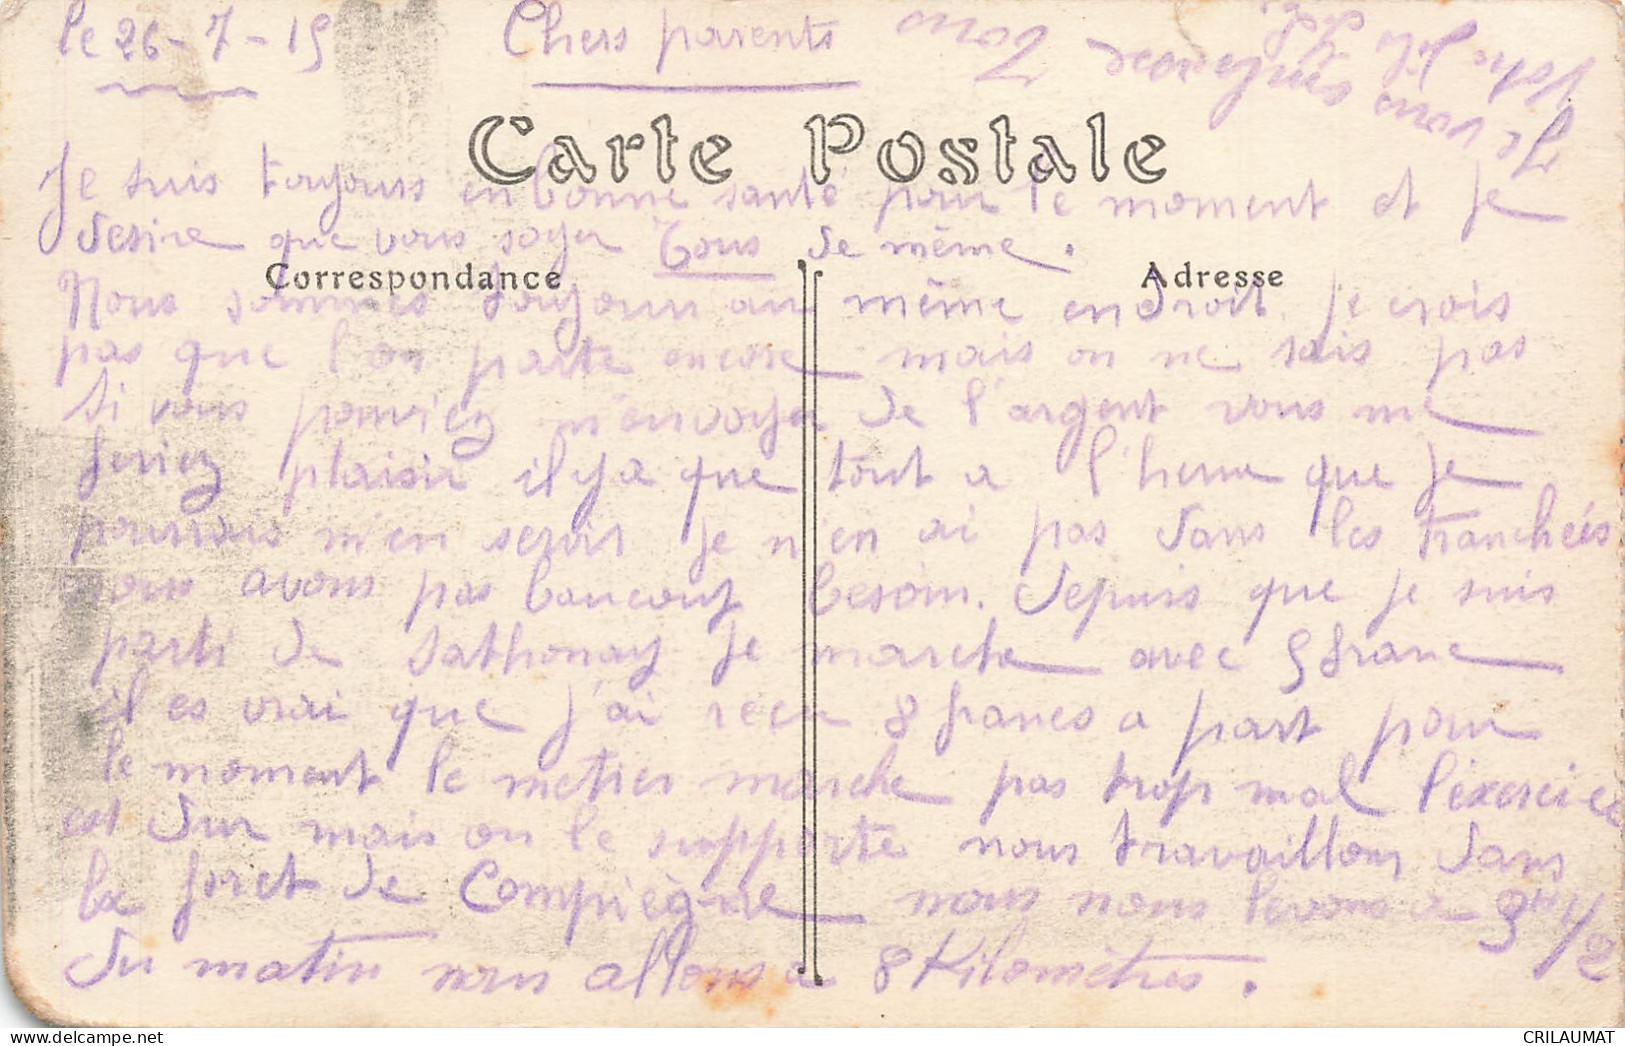 le 26-7-15 Chers parents
Carte Postale
Je suis toujours en bonne santé pour le moment et je
desire que vous soyer Tous de même.
Correspondance
Adresse
Nous sommes toujours au même endroit. je crois
pas que l'on parte encore mais on ne sais pas
Si vous pouviez m'envoyer de l'argent vous me
feriez plaisir il y a que tout a l'heure que je
pourrais m'en servir je n'en ai pas dans les tranchées
nous avons pas baucout besoin. depuis que je suis
parti de Sathonay je marche avec 5 franc
il es vrai que j'ai reçu 8 francs a part pour
le moment le metier marche pas trop mal l'éxercice
est dur mais on le supporte nous travaillons dans
la foret de Compiègne nous nous levons a 3 1/2
du matin nous allons a 8 Kilomètres.
Je vous
CRILAUMAT